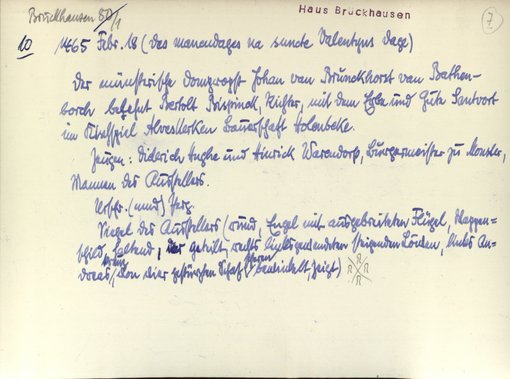 Bruckhausen 80/1
Haus Bruckhausen
7
10 1465 Febr. 18 (des manendages na suncte Valentyns dage)
Der münsterische Dompropst Johan van Brunckhorst van Bathen-
borch belehnt Bertolt Bispinck, Richter, mit dem Erbe und Gute Santvort
im Kirchspiel Alverskerken Bauerschaft Holenbeke.
Zeugen: Diderich Hughe und Hinrick Warendorp, Buergermeister zu Monster,
Mannen des Ausstellers.
Urschr. (mnd) Perg.
Siegel des Ausstellers (rund, Engel mit ausgebreiteten Flügel, Wappen-
schild haltend, der geteilt, rechts linksgewendeten steigenden Löwen, links An-
dreaskreuz, von vier gestürzten Schafscheren bewinkelt, zeigt)